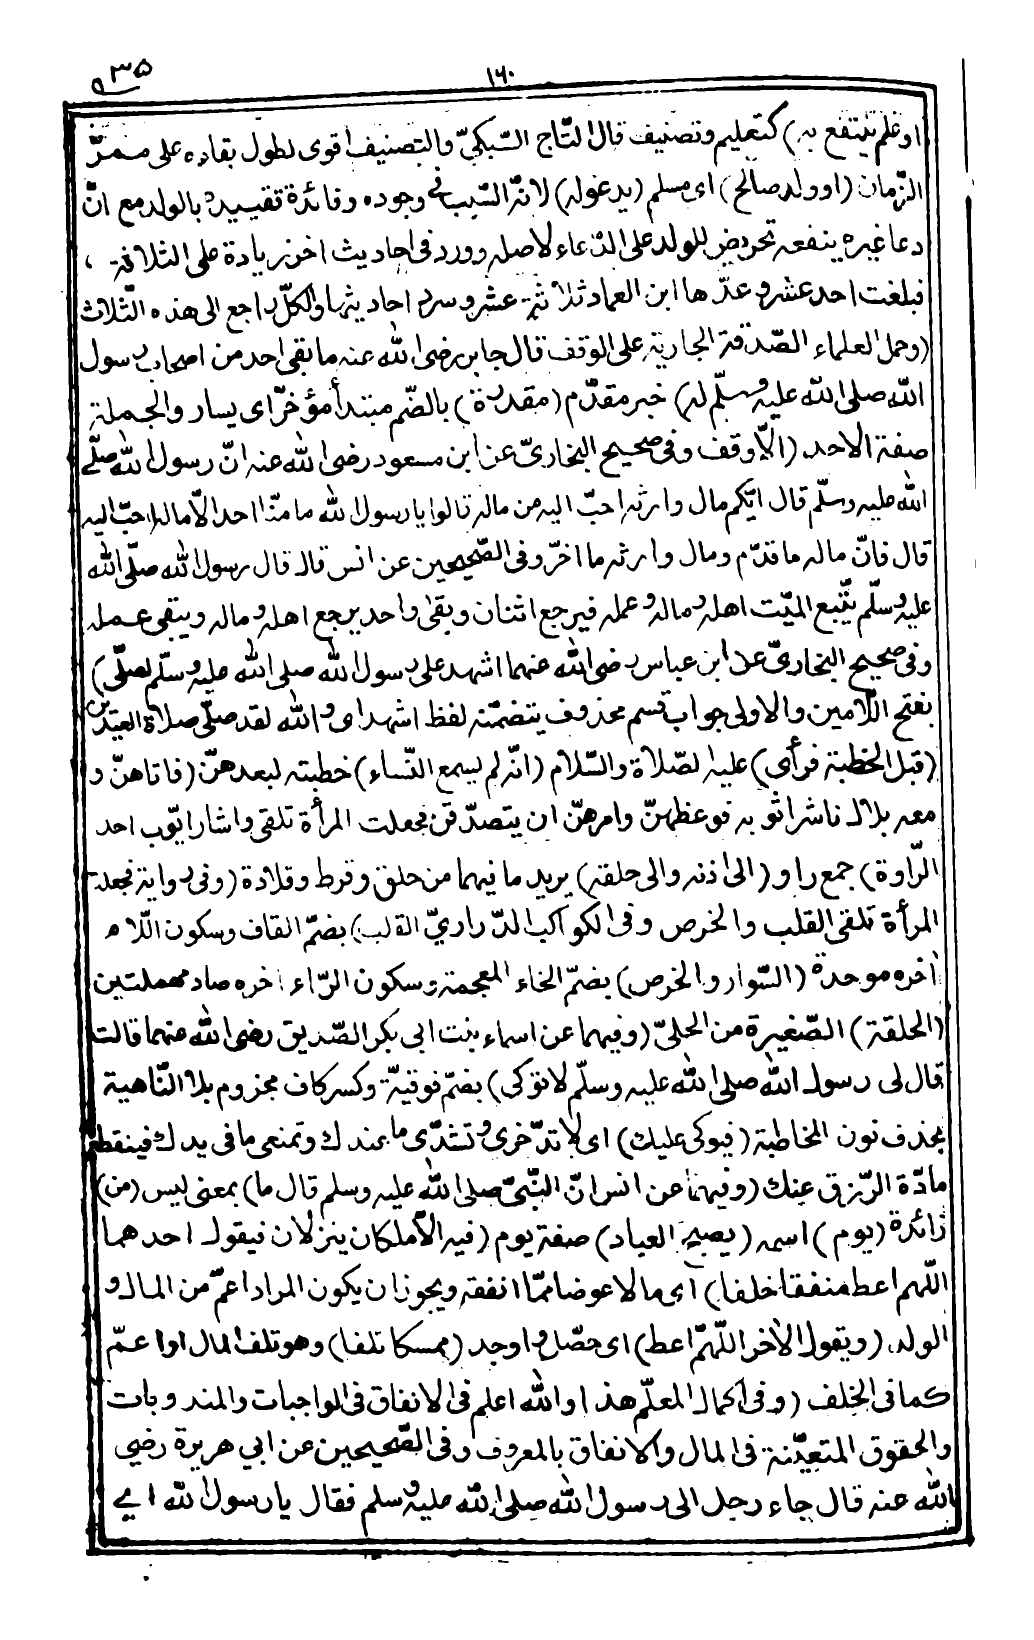 ٩٣٥
١٦٠
او علم ينتفع به) كتعليم وتصنيف قال التّاج السّبكيّ والتصنيف اقوى لطول بقاءه على ممرّ
الزّمان (او ولد صالح) اى مسلم (يدعوله) لانّه السّبب فى وجوده وفائدة تقييده بالولد مع انّ
دعا غيره ينفعه تحريض للولد على الدّعاء لاصله وورد فى احاديث اخر زيادة على الثلاثة ،
فبلغت احد عشر وعدّها ابن العماد ثلاثة عشر وسرد احاديثها والكلّ راجع الى هذه الثّلاث
(وحمل العلماء الصّدقة الجارية على الوقف قال جابر رضى الله عنه ما بقى احد من اصحاب رسول
الله صلى الله عليه وسلّم له) خبر مقدّم (مقدرة) بالضّم مبتدأ مؤخّر اى يسار والجملة
صفة الاحد (الّا وقف وفى صحيح البخارىّ عن ابن مسعود رضى الله عنه انّ رسول الله صلّى
الله عليه وسلّم قال ايّكم مال وارثه احبّ اليه من ماله قالوا يا رسول الله ما منّا احد الّا ماله احبّ اليه
قال فانّ ماله ما قدّم ومال وارثه ما اخّر وفى الصّحيحين عن انس قال قال رسول الله صلّى الله
عليه وسلّم يتّبع الميّت اهله وماله وعمله فيرجع اثنان ويبقى واحد يرجع اهله وماله ويبقى عمله
وفى صحيح البخارىّ عن ابن عباس رضى الله عنهما اشهد على رسول الله صلى الله عليه وسلّم لصلّى)
بفتح اللّامين والاولى جواب قسم محذوف يتضمّنه لفظ اشهد اى والله لقد صلّى صلاة العيدين
(قبل الخطبة فرأى) عليه الصّلاة والسّلام (انّه لم يسمع النّساء) خطبته لبعدهنّ (فاتاهنّ و
معه بلال ناشر اثوبه فوعظهنّ وامرهنّ ان يتصدّقن فجعلت المرأة تلقى واشار ايّوب احد
الرّاوة) جمع راو (الى اذنه والى حلقه) يريد ما فيهما من حلق وقرط وقلادة (وفى رواية فجعلت
المرأة تلقى القلب والخرص وفى الكواكب الدّراريّ القلب) بضمّ القاف وسكون اللّام
آخره موحدة (السّوار والخرص) بضمّ الخاء المعجمة وسكون الرّاء اخره صاد مهملتين
(الحلقة) الصّغيرة من الحلىّ (وفيهما عن اسماء بنت ابى بكر الصّديق رضى الله عنهما قالت
قال لى رسول الله صلى الله عليه وسلّم لا توكى) بضمّ فوقيّة وكسر كاف مجزوم بلا النّاهية
بحذف نون المخاطبة (فيوكى عليك) اى لا تدّخرى وتشدّى ما عندك وتمنعى ما فى يدك فينقطع
مادّة الرّزق عنك (وفيهما عن انس انّ النبّىّ صلى الله عليه وسلم قال ما) بمعنى ليس (من)
زائدة (يوم) اسمه (يصبح العباد) صفة يوم (فيه الّا ملكان ينزلان فيقول احدهما
اللّهم اعط منفقا خلفا) اى مالا عوضا ممّا انفقه ويجوز ان يكون المراد اعمّ من المال و
الولد (ويقول الاخر اللّهمّ اعط) اى حصّل واوجد (ممسكا تلفا) وهو تلف المال او اعمّ
كما فى الخلف (وفى اكمال المعلّم هذا والله اعلم فى الانفاق فى الواجبات والمندوبات
والحقوق المتعيّنة فى المال والانفاق بالمعروف وفى الصّحيحين عن ابي هريرة رضي
الله عنه قال جاء رجل الى رسول الله صلى الله عليه وسلم فقال يا رسول الله اي